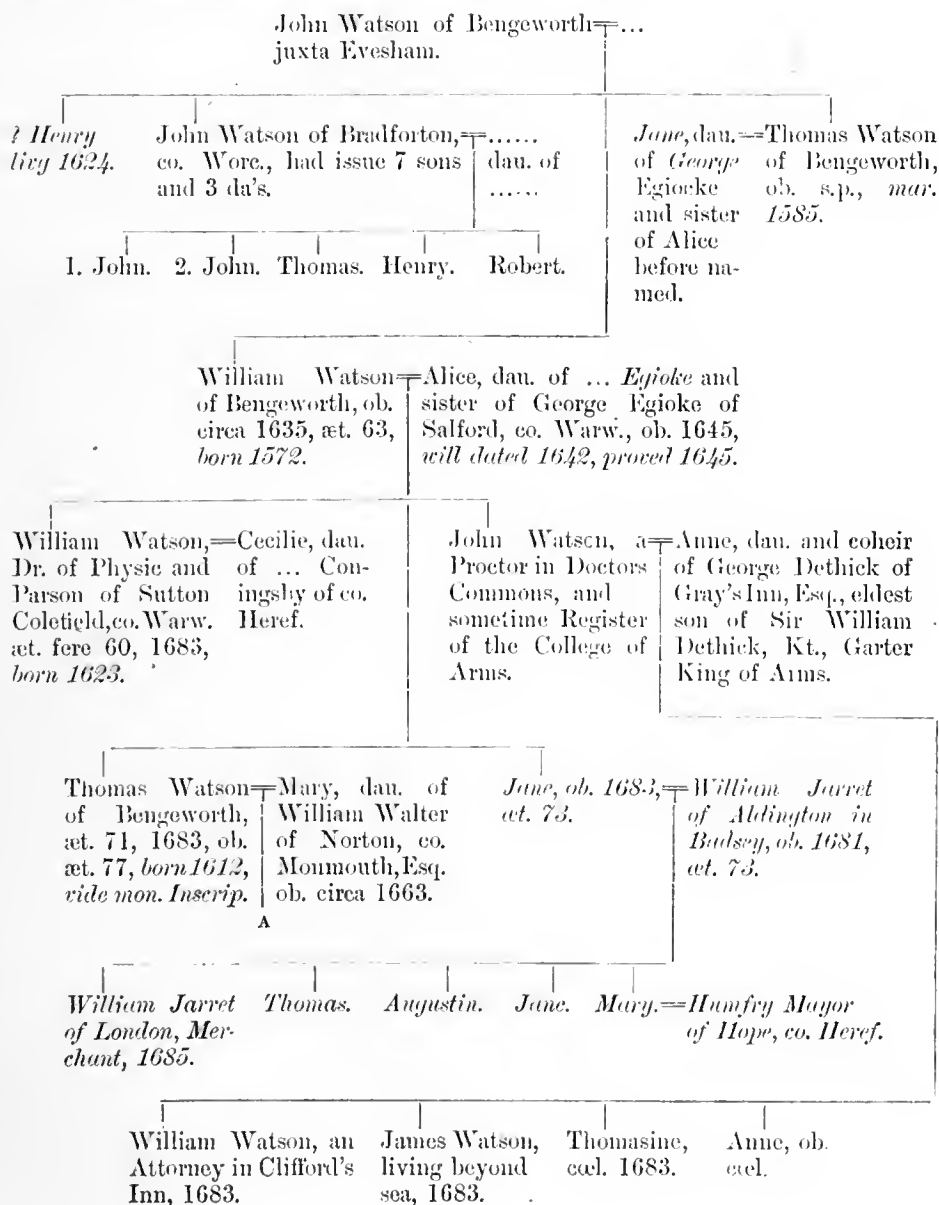 John Watson of Bengeworth=...
juxta Evesham.
? Henry
livg 1624.
John Watson of Bradforton,=......
co. Worc., had issue 7 sons
and 3 da's.
dau. of
......
Jane, dau.
of George
Egiocke
and sister
of Alice
before na-
med.
=Thomas Watson
of Bengeworth,
ob. s.p., mar.
1585.
1. John. 2. John. Thomas. Henry. Robert.
William Watson
of Bengeworth, ob.
circa 1635, æt. 63,
born 1572.
=Alice, dau. of ... Egioke and
sister of George Egioke of
Salford, co. Warw., ob. 1645,
will dated 1642, proved 1645.
William Watson,
Dr. of Physic and
Parson of Sutton
Coletield, co. Warw.
æt. fere 60, 1683,
born 1623.
=Cecilie, dau.
of ... Con-
ingsby of co.
Heref.
John Watson, a
Proctor in Doctors
Commons, and
sometime Register
of the College of
Arms.
=Anne, dau. and coheir
of George Dethick of
Gray's Inn, Esq., eldest
son of Sir William
Dethick, Kt., Garter
King of Arms.
Thomas Watson
of Bengeworth,
æt. 71, 1683, ob.
æt. 77, born 1612,
vide mon. Inscrip.
=Mary, dau. of
William Walter
of Norton, co.
Monmouth, Esq.
ob. circa 1663.
A
Jane, ob. 1683,
æt. 73.
=William Jarret
of Aldington in
Badsey, ob. 1681,
æt. 73.
William Jarret
of London, Mer-
chant, 1685.
Thomas. Augustin. Jane. Mary.=Humfry Mayor
of Hope, co. Heref.
William Watson, an
Attorney in Clifford's
Inn, 1683.
James Watson,
living beyond
sea, 1683.
Thomasine,
cœl. 1683.
Anne, ob.
cœl.